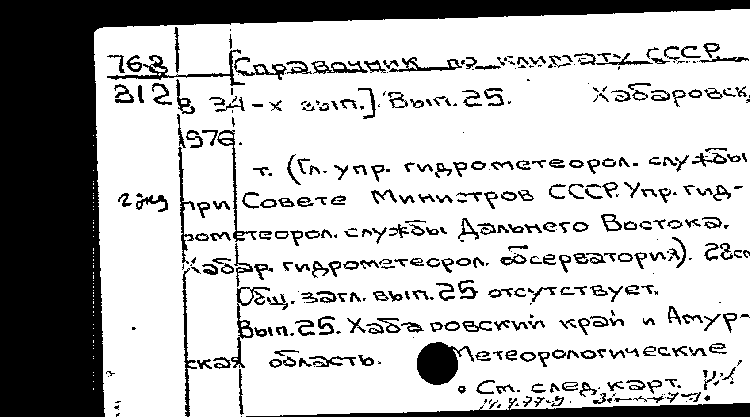 76-8 [Справочник по климату СССР.
312 в 34-х вып.] Вып. 25. Хабаровск,
1976.
т. (Гл. упр. гидрометеорол. службы
2 экз при Совете Министров СССР. Упр. гид-
рометеорол. службы Дальнего Востока.
Хабар. гидрометеорол. обсерватория). 28см
Общ. загл. вып. 25 отсутствует.
Вып. 25. Хабаровский край и Амур-
ская область. Метеорологические
См. след. карт.